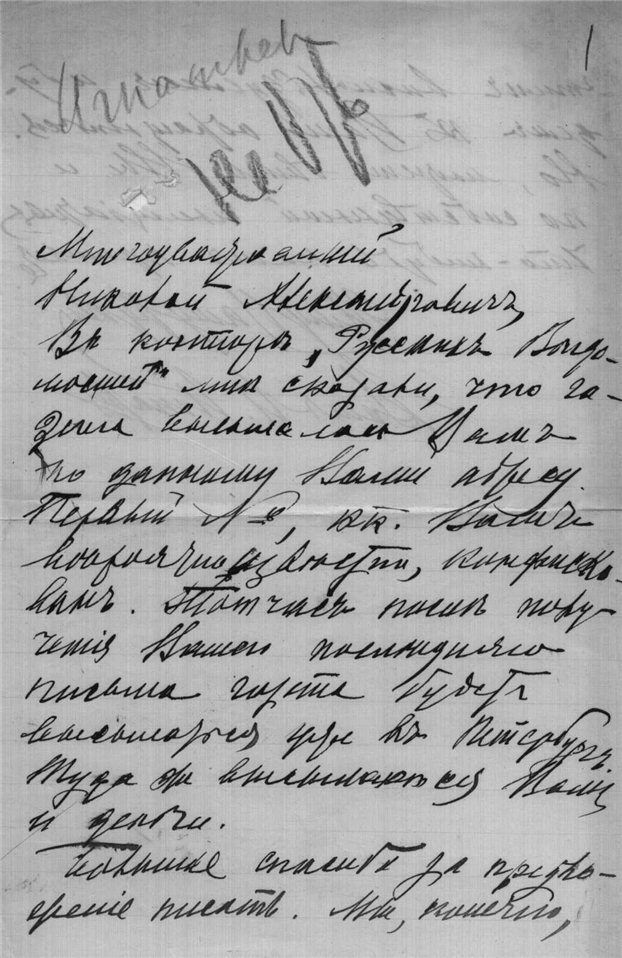 1
Многоуважаемый
Николай Александровичъ,
Въ конторѣ „Русскихъ Вѣдо-
мостей" мнѣ сказали, что га-
зета высылалась Вамъ
по данному Вами адресу.
Первый №, какъ Вамъ
вѣроятно извѣстно, конфиско-
ванъ. Тотчасъ послѣ полу-
ченія Вашего послѣдняго
письма газета будетъ
высылаться уже въ Петербургъ.
Туда же высылаются Вамъ
и деньги.
Большое спасибо за предло-
женіе писать. Мы, конечно,